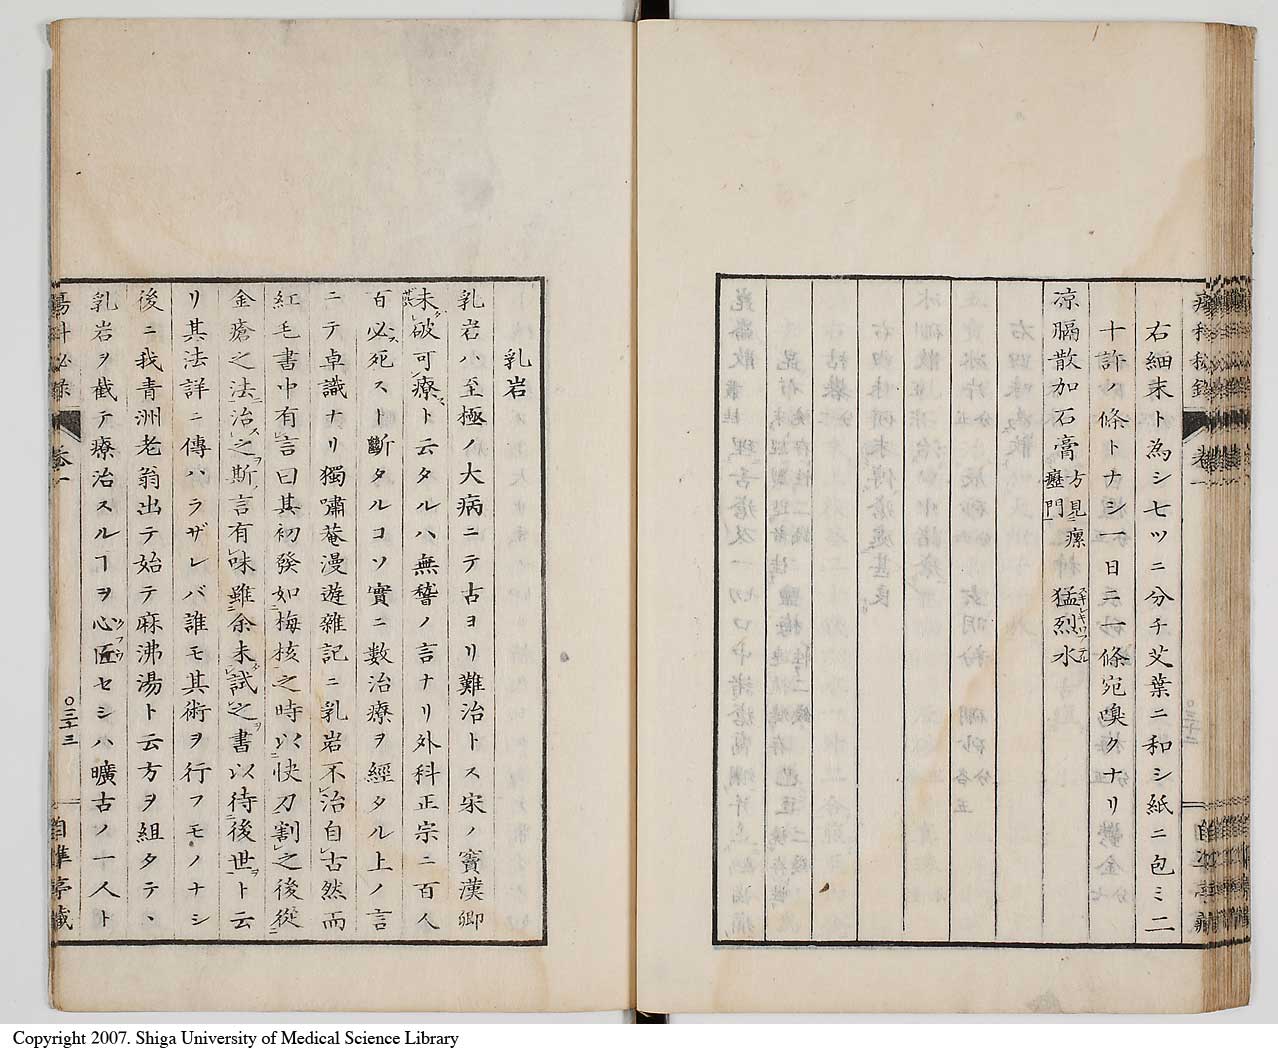 右細末ト為シ七ツニ分チ艾葉ニ和シ紙ニ包ミ二
十許ノ條トナシ一日ニ一條宛嗅クナリ
凉膈散加石膏 方見瘰癧門 猛烈水
乳岩
乳岩ハ至極ノ大病ニテ古ヨリ難治トス宋ノ竇漢卿
未破可療ト云タルハ無稽ノ言ナリ外科正宗ニ百人
百必死スト斷タルコソ實ニ數治療ヲ經タル上ノ言
ニテ卓識ナリ獨嘯菴漫遊雜記ニ乳岩不治自古然而
紅毛書中有言曰其初發如梅核之時以快刀割之後從
金瘡之法治之斯言有味雖余未試之書以待後世ト云
リ其法詳ニ傳ハラザレバ誰モ其術ヲ行フモノナシ
後ニ我青洲老翁出テ始テ麻沸湯ト云方ヲ組タテヽ
乳岩ヲ截テ療治スルヿヲ心匠セシハ曠古ノ一人ト
瘍科秘录 卷一 〇三十三 自準亭藏
Copyright 2007. Shiga University of Medical Science Library